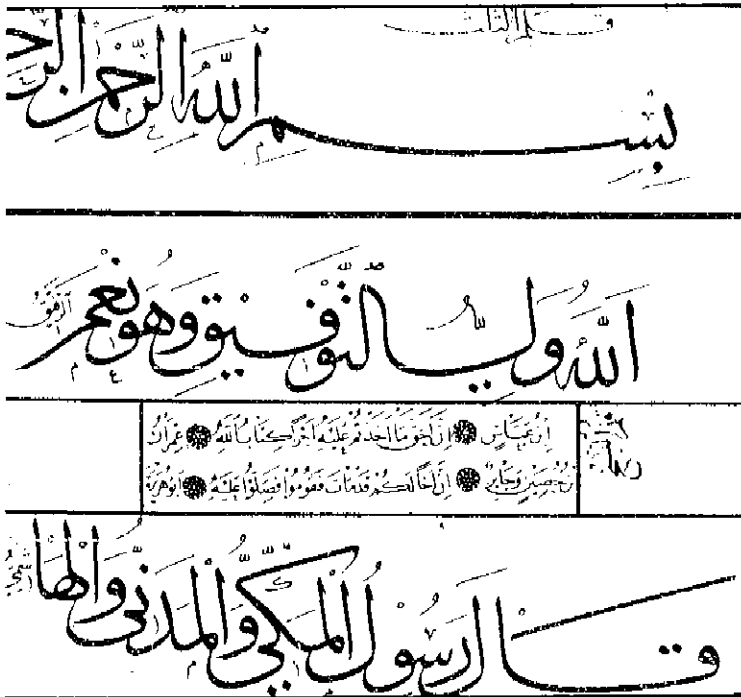 قلم الثلث
بِسْمِ اللّٰهِ الرَّحْمٰنِ الرح
اَللّٰهُ وَلِيُّ التَّوْفِيقِ وَهُوَ نِعْمَ الرَّفِيقُ
ابن عباس ان احق ما اخذتم عليه اجرا كتاب الله عمران
بن حصين وجابر ان اخا لكم قد مات فقوموا فصلوا عليه ابو هريرة
قَالَ رَسُولُ الْمَكِّيُّ وَالْمَدَنِيُّ وَالْهَاشمي